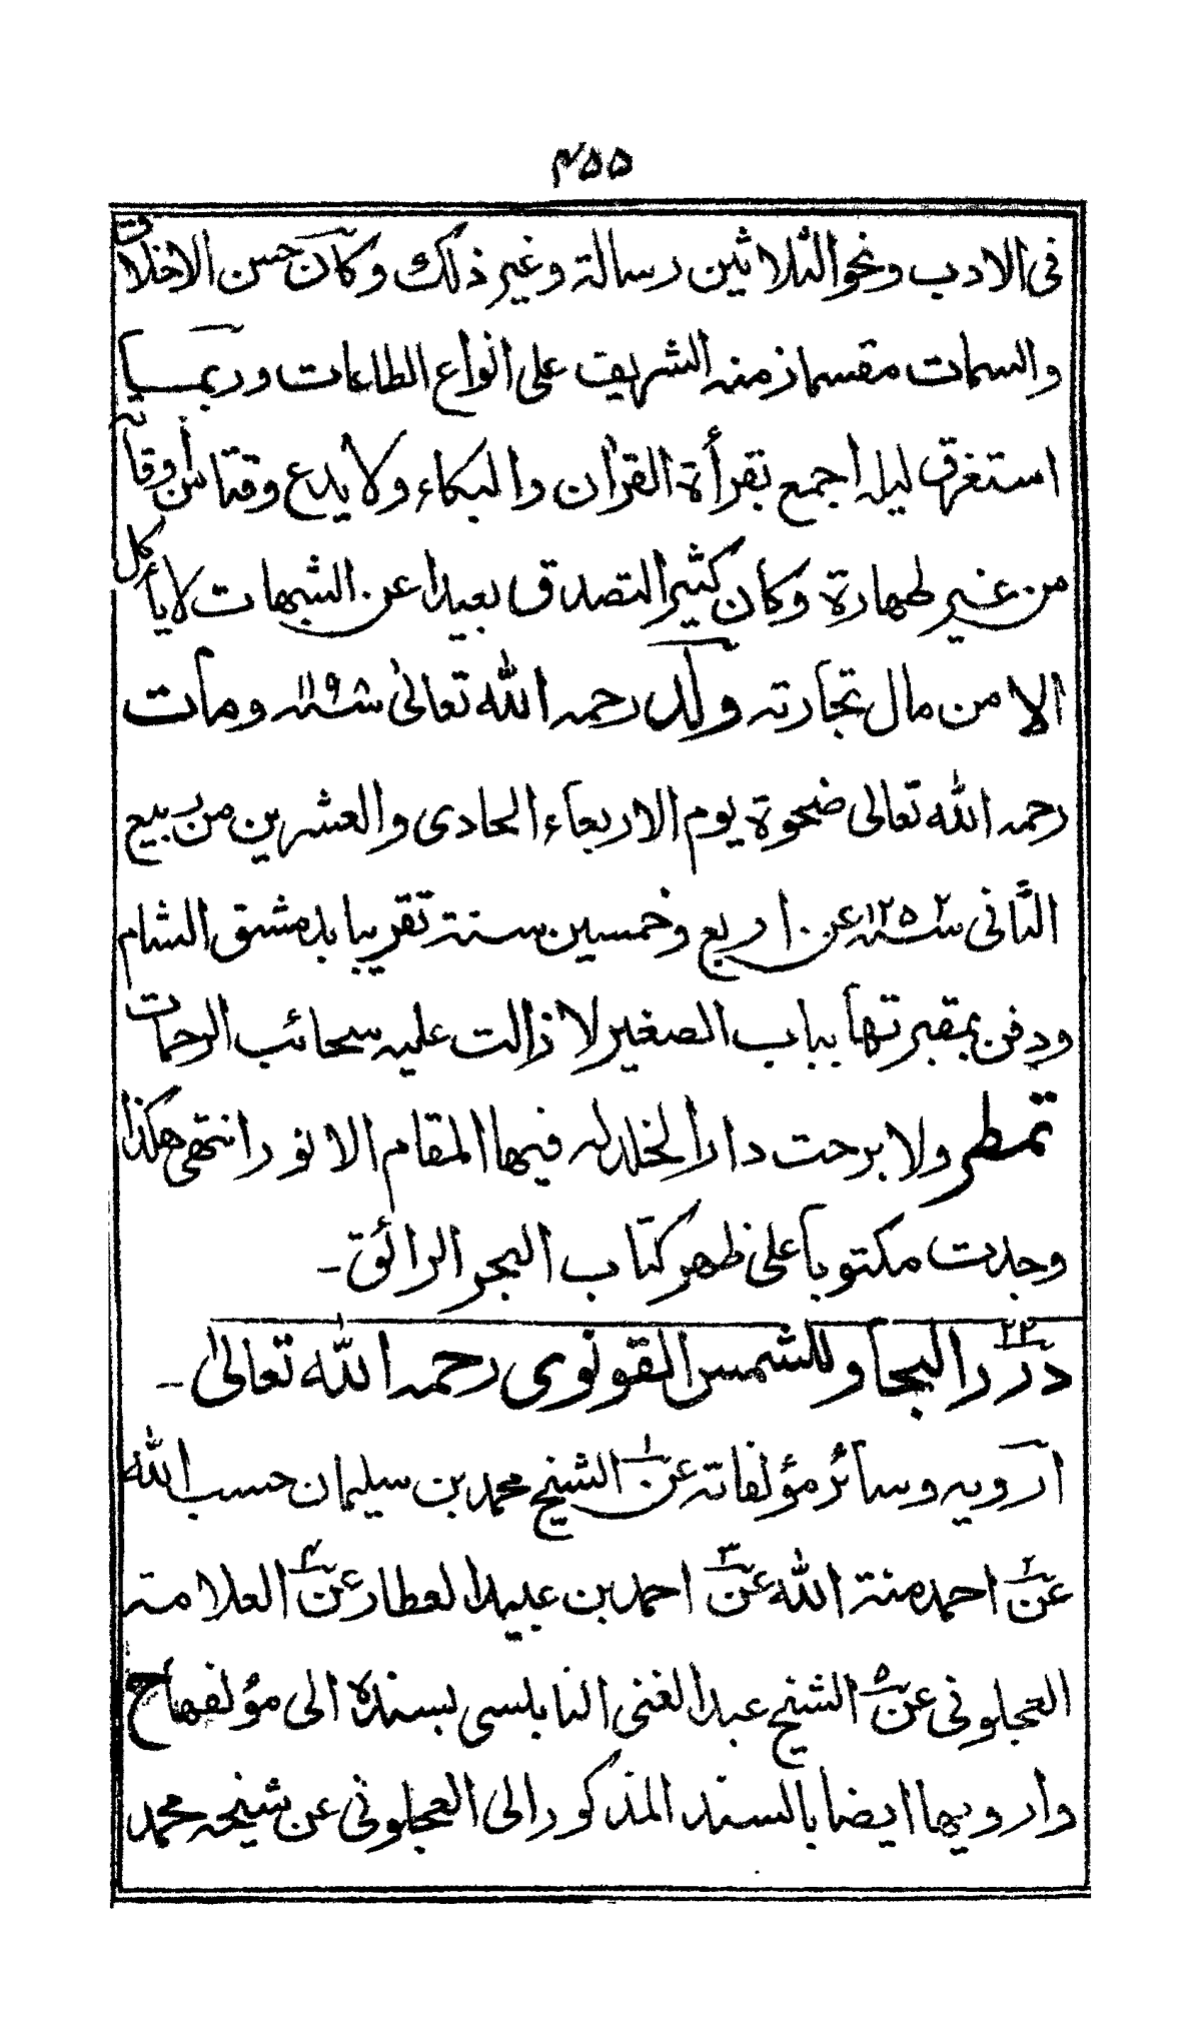 ٤٥٥
فى الادب ونحو الثلاثين رسالة وغير ذلك وكان حسن الاخلاق
والسمات مقسما زمنه الشريف على انواع الطاعات وربما
استغرق ليله اجمع بقرأة القرأن والبكاء ولا يدع وقتا من أوقاته
من غير طهارة وكان كثير التصدق بعيدا عن الشبهات لا يأكل
الا من مال تجارته ولد رحمه الله تعالى سنه ١١٩٨ ومات
رحمه الله تعالى ضحوة يوم الاربعاء الحادى والعشرين من ربيع
الثانى سنه ١٢٥٢ عن اربع وخمسين سنة تقريبا بدمشق الشام
ودفن بمقبرتها بباب الصغير لا زالت عليه سحائب الرحمات
تمطر ولا برحت دار الخلد له فيها المقام الانور انتهى هكذا
وجدت مكتوبا على ظهر كتاب البحر الرائق ـ
٢٢ درر البحار للشمس القونوى رحمه الله تعالى ـ
ارويه وسائر مؤلفاته عن ١ الشيخ محمد بن سليمان حسب الله
عن ٢ احمد منة الله عن ٣ احمد بن عبيد العطار عن ٤ العلامة
العجلونى عن ٥ الشيخ عبد الغنى النابلسى بسنده الى مؤلفها ح
وارويها ايضا بالسند المذكور الى العجلونى عن شيخه محمد